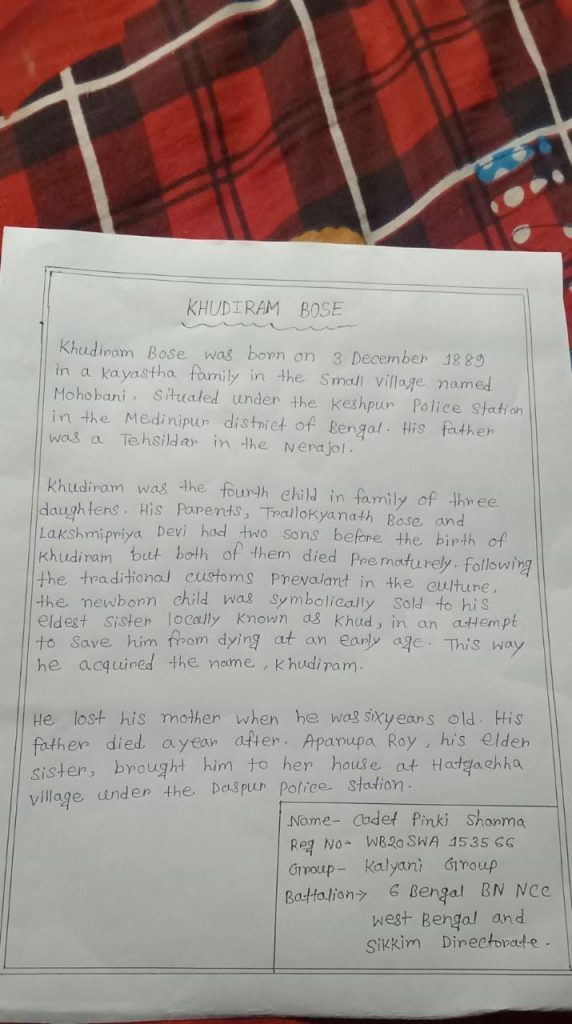 KHUDIRAM BOSE
Khudiram Bose was born on 3 December 1889
in a Kayastha family in the Small village named
Mohobani, Situated under the Keshpur Police Station
in the Medinipur district of Bengal. His father
was a Tehsildar in the Nerajol.
Khudiram was the fourth child in family of three
daughters. His Parents, Trailokyanath Bose and
Lakshmipriya Devi had two sons before the birth of
Khudiram but both of them died Prematurely. Following
the traditional customs prevalant in the culture,
the newborn child was symbolically sold to his
eldest sister locally known as Khud, in an attempt
to save him from dying at an early age. This way
he acquired the name, Khudiram.
He lost his mother when he was six years old. His
father died a year after. Aparupa Roy, his elder
sister, brought him to her house at Hatgachha
village under the Daspur Police Station.
Name- Cadet Pinki Sharma
Reg No- WB20SWA 153566
Group- Kalyani Group
Battalion→ 6 Bengal BN NCC
West Bengal and
Sikkim Directorate.